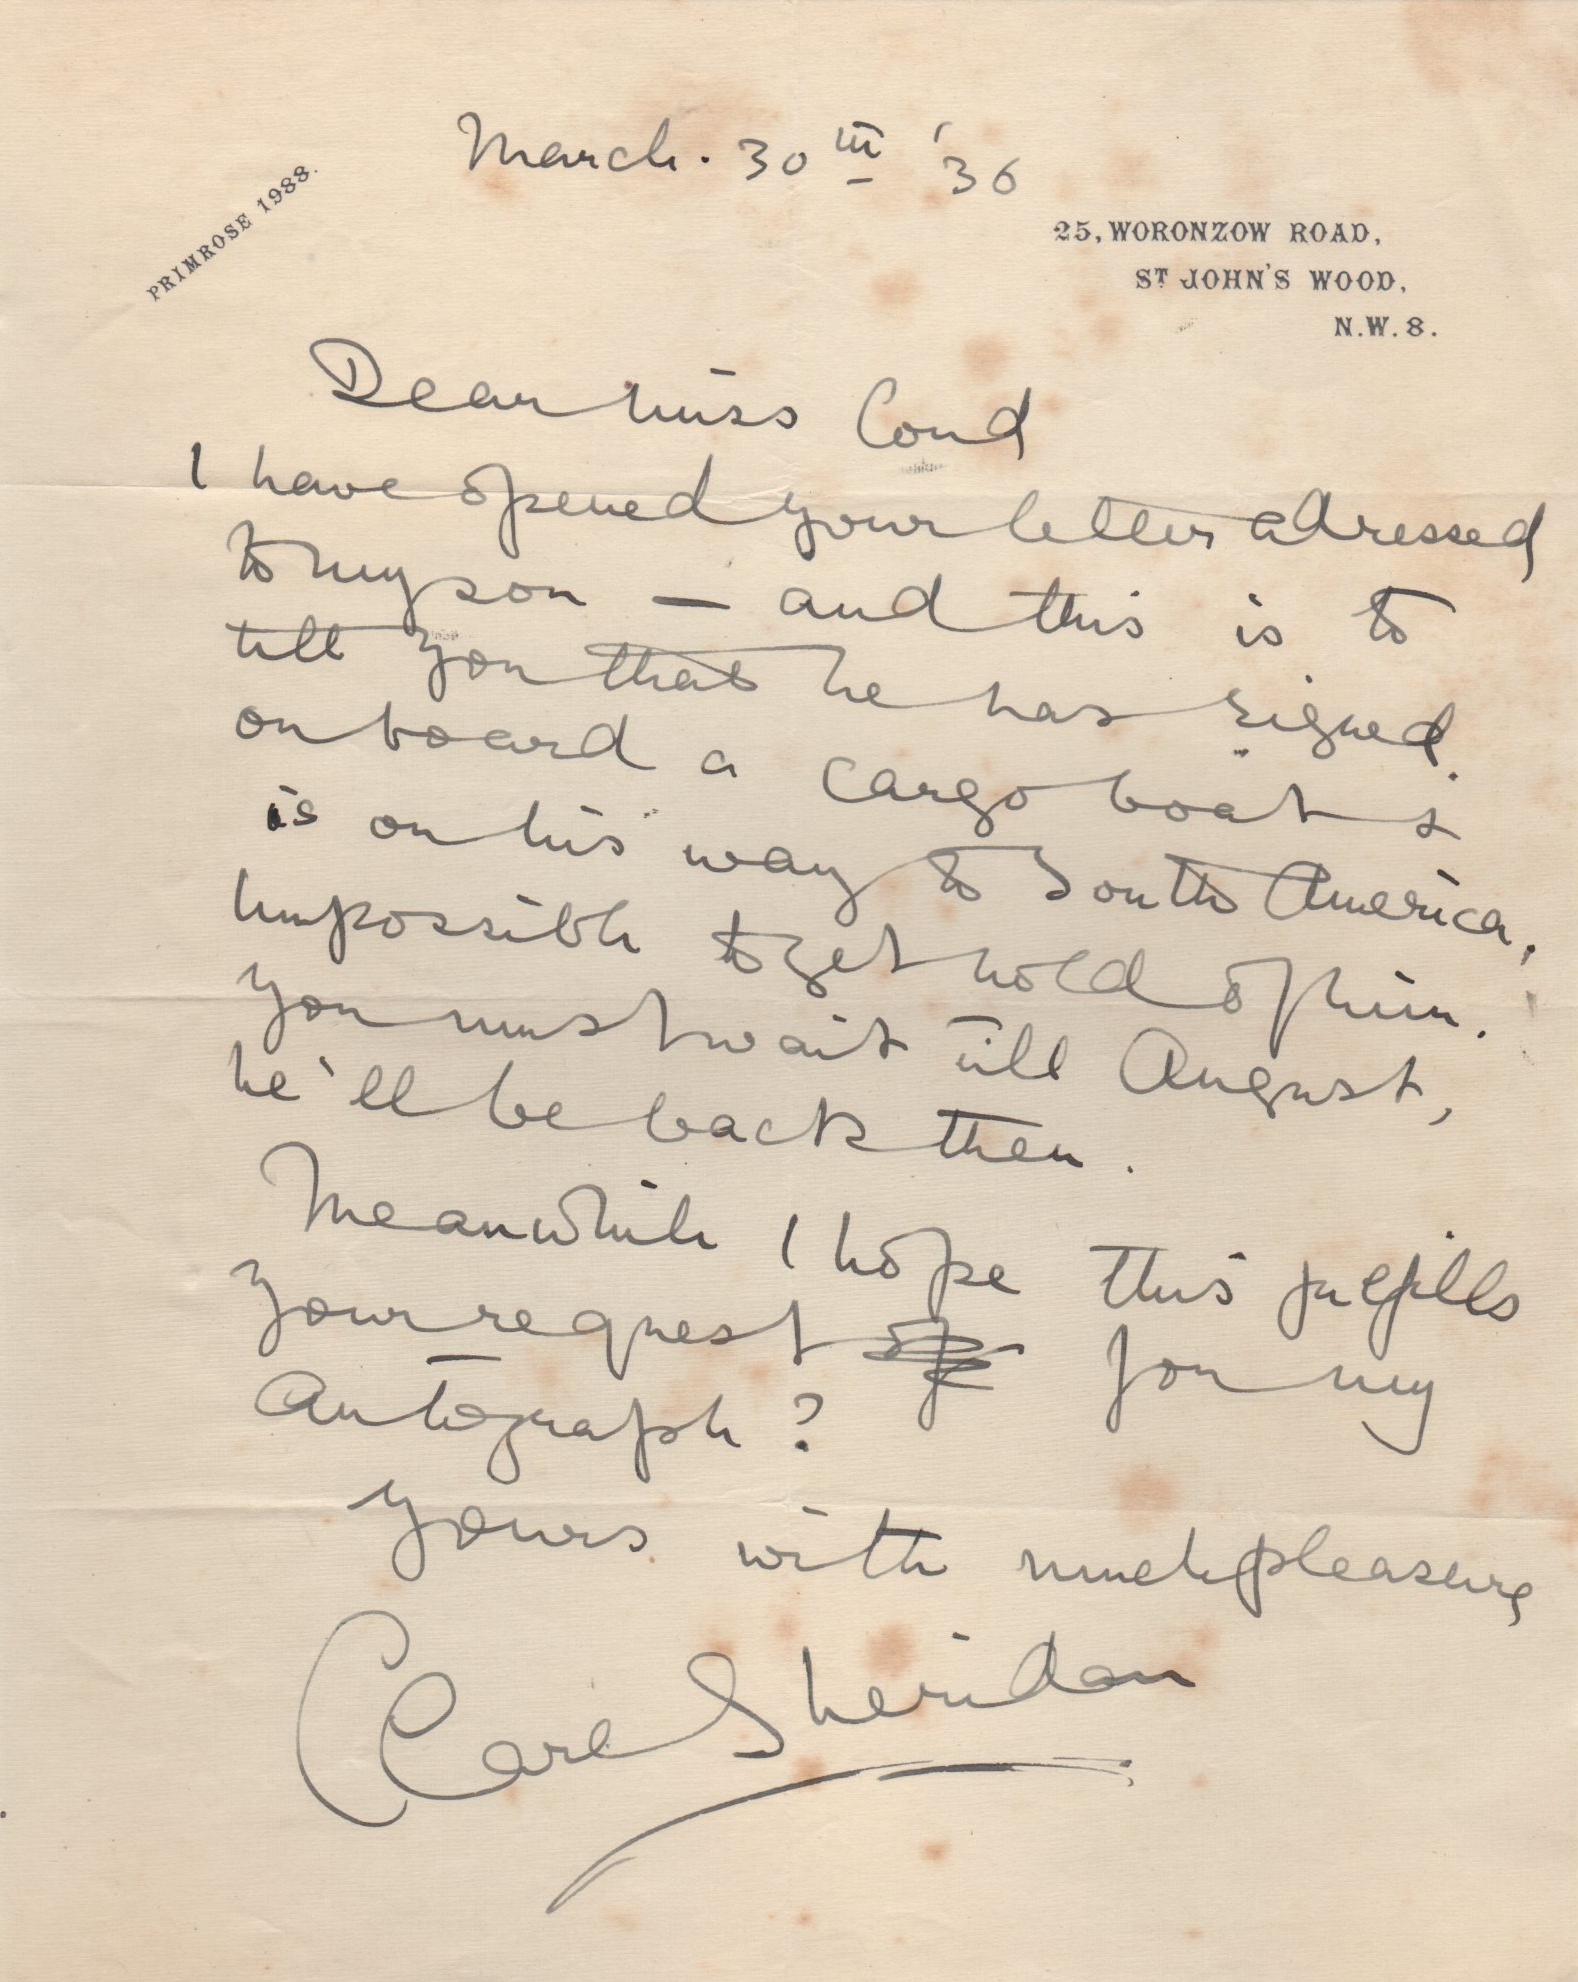 March. 30th '36
PRIMROSE 1988.
25, WORONZOW ROAD,
ST JOHN'S WOOD,
N.W.8.
Dear Miss Cond
I have opened your letter adressed
to my son — and this is to
tell you that he has signed
on board a cargo boat &
is on his way to South America.
Impossible to get hold of him.
You must wait till August,
he'll be back then.
Meanwhile I hope this fulfills
your request of for my
Autograph?
Yours with much pleasure
Clare Sheridan